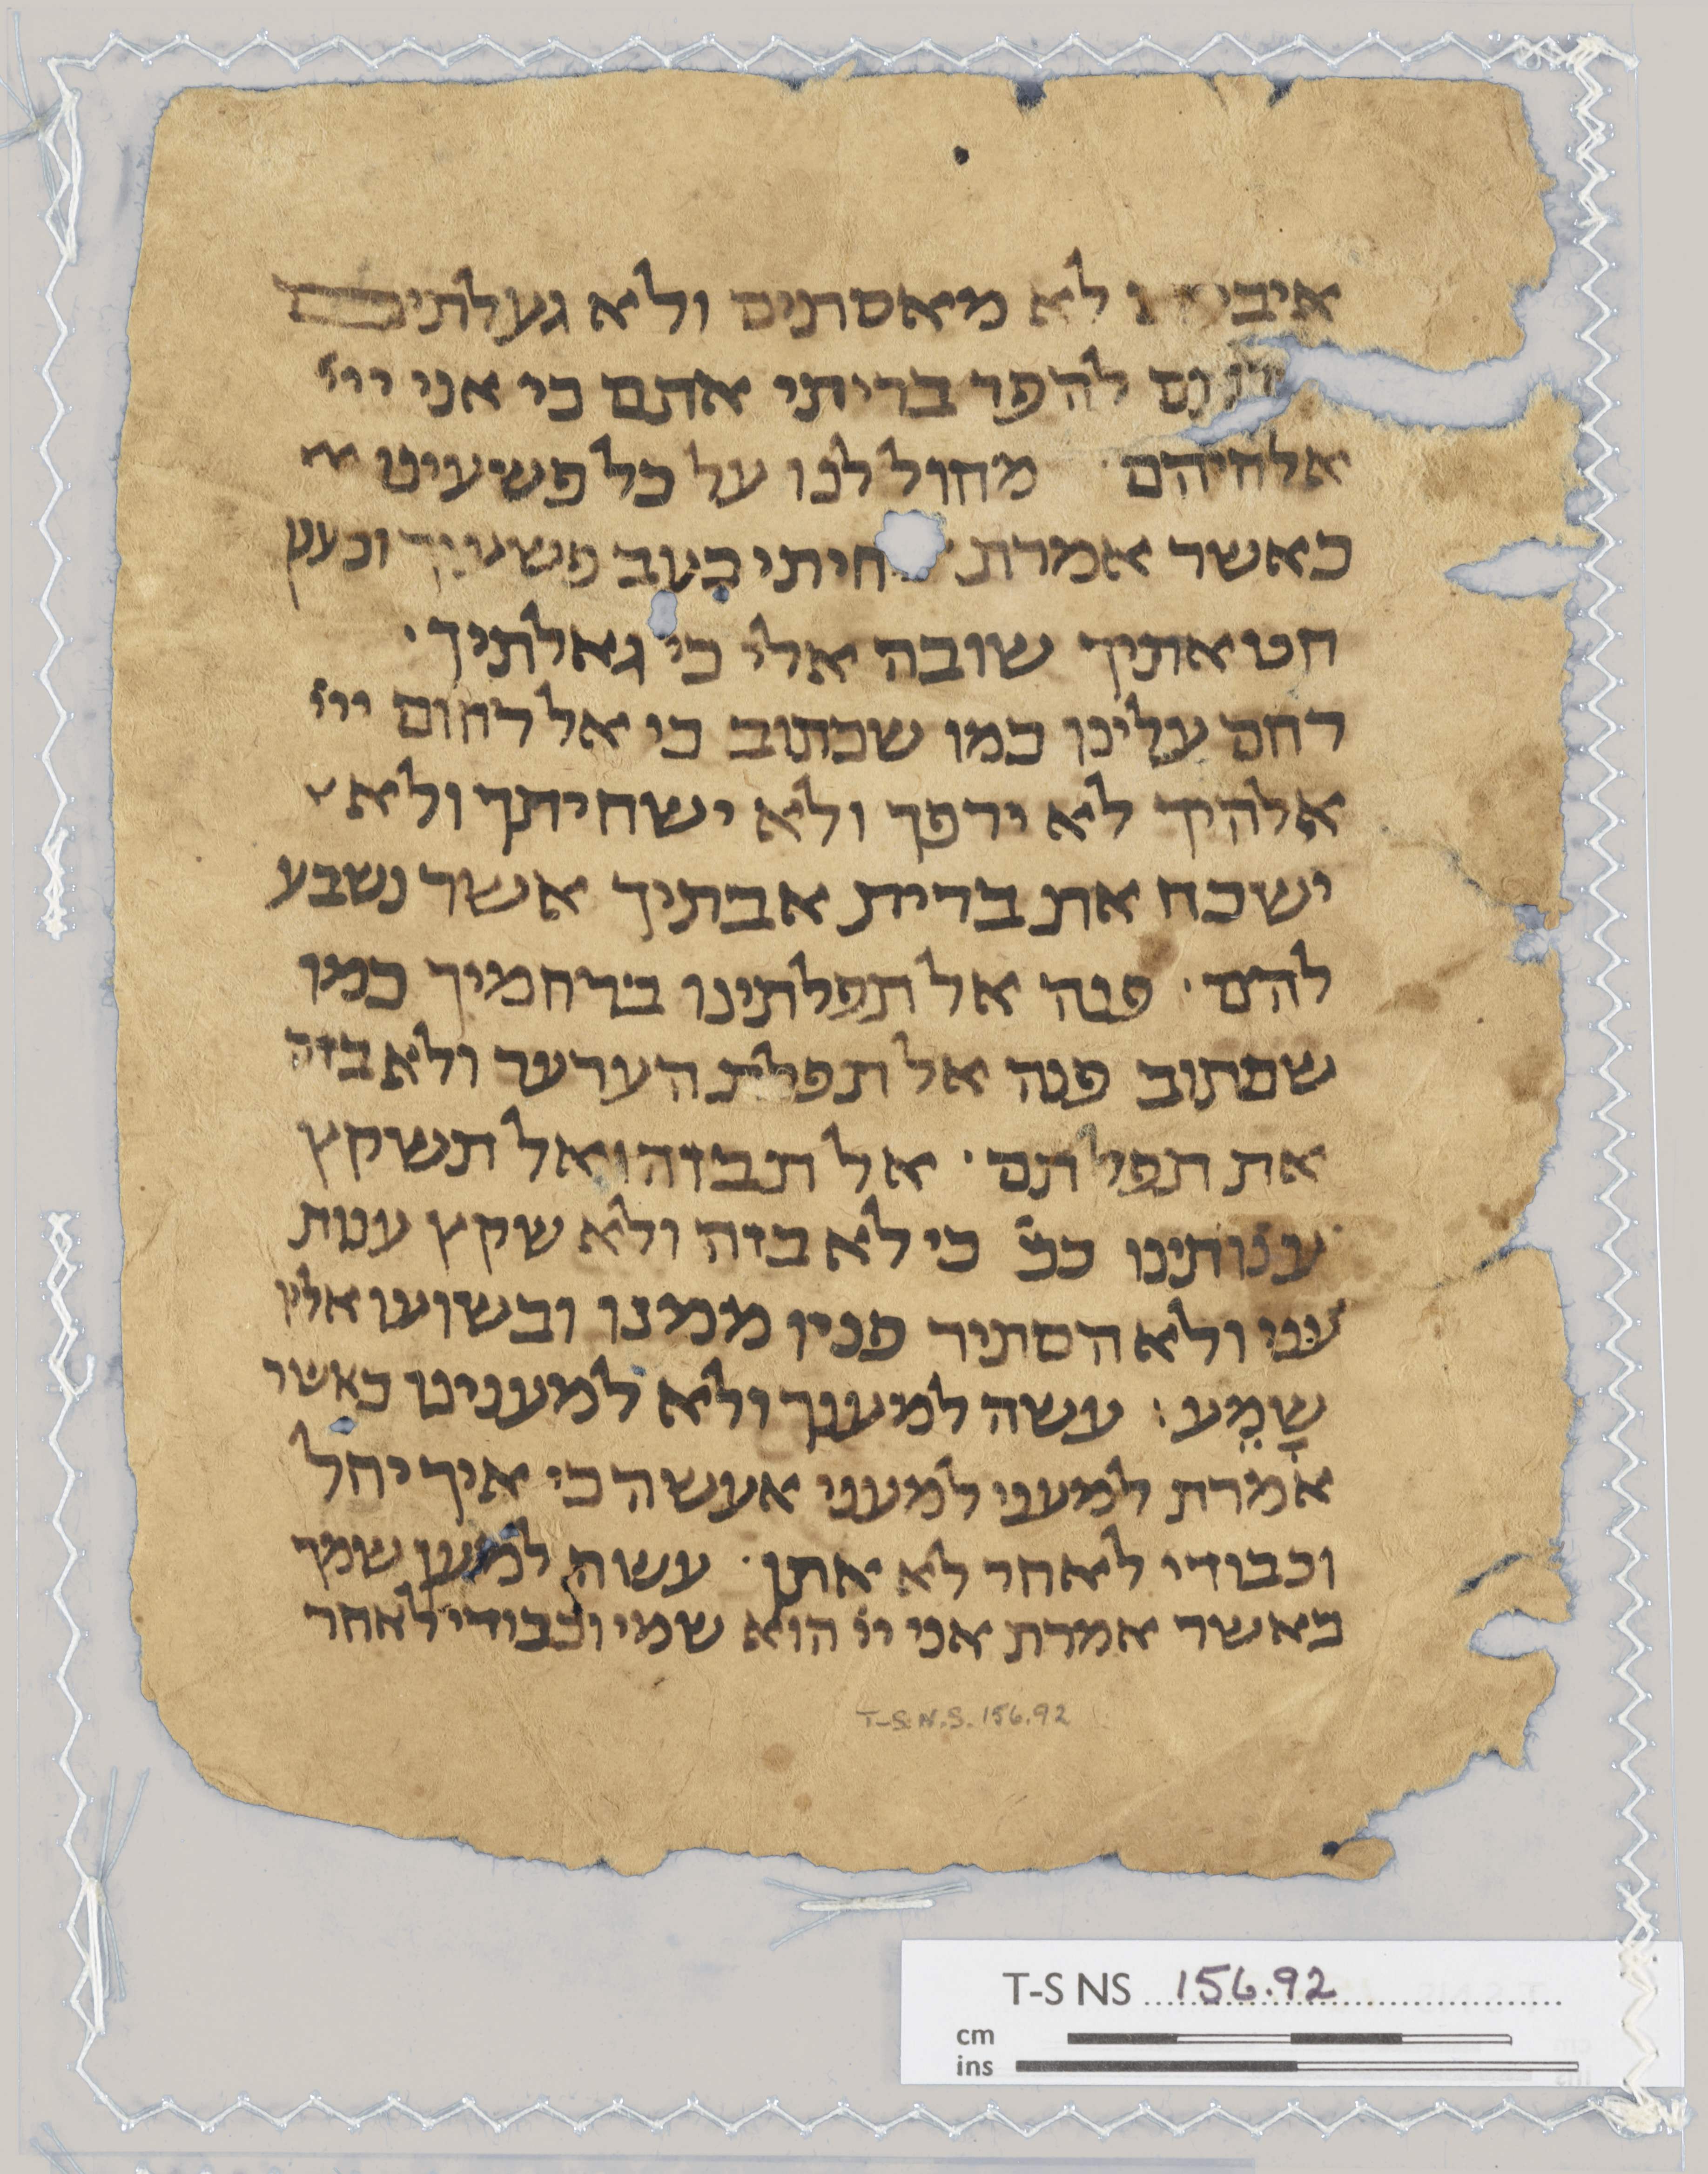 איביהם לא מאסתים ולא געלתים
לכלותם להפר בריתי אתם כי אני ייי
אלהיהם · מחול לנו על כל פשעינו
כאשר אמרת מחיתי כעב פשעיך וכענן
חטאתיך שובה אלי כי גאלתיך ·
רחם עלינו כמו שכתוב כי אל רחום ייי
אלהיך לא ירפך ולא ישחיתך ולא
ישכח את ברית אבתיך אשר נשבע
להם · פנה אל תפלתינו ברחמיך כמו
שכתוב פנה אל תפלת הערער ולא בזה
את תפלתם · אל תבזה ואל תשקץ
ענותינו ככ כי לא בזה ולא שקץ ענות
עני ולא הסתיר פניו ממנו ובשועו אליו
שָמֵע : עשה למענך ולא למענינו כאשר
אמרת למעני למעני אעשה כי איך יחל
וכבודי לאחר לא אתן · עשה למען שמך
כאשר אמרת אני ייי הוא שמי וכבודי לאחר
T-S. N.S. 156.92
T-S NS 156.92
cm
ins